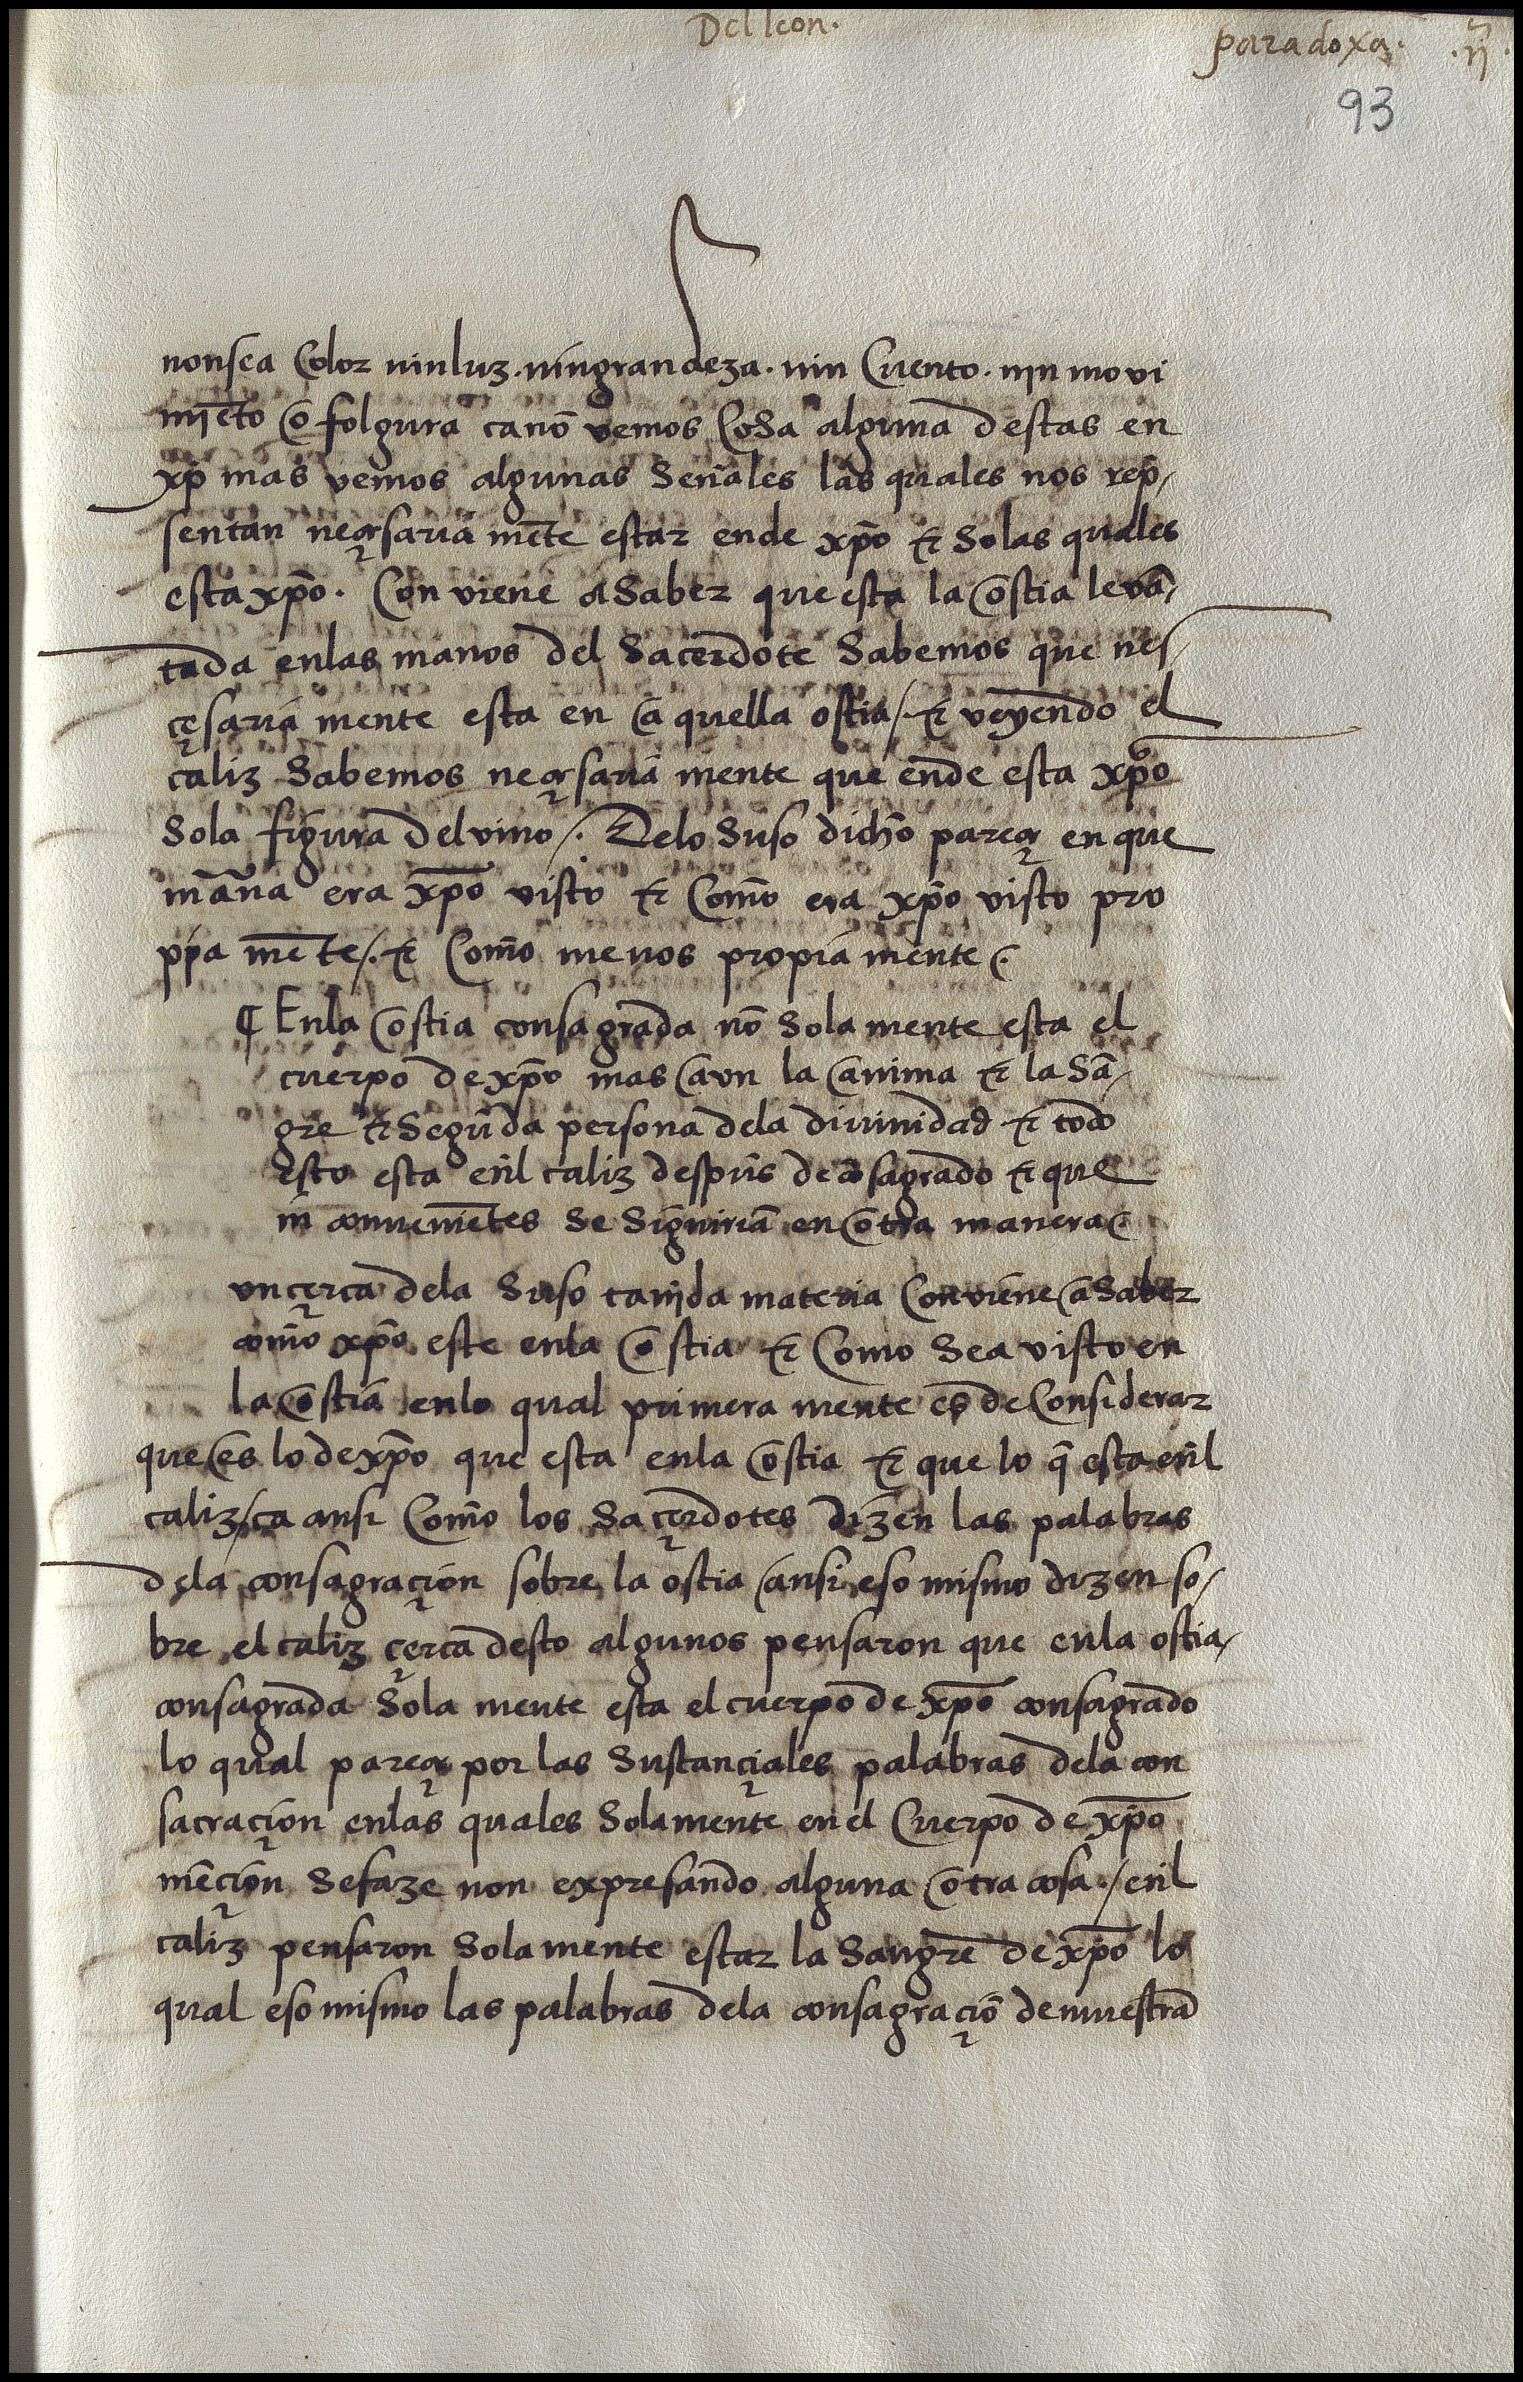 Del leon.
paradoxa. .ij.
93
nonsea Color ninluz. ningrandeza. nin Cuento. nin movi
miẽto o folgura canõ vemos CoSa alguna destas en
xp̃ mas vemos algunas Señales las quales nos rep̃
sentan neçesaria mẽte estar ende xp̃o & So las quales
esta xp̃o. Con viene a Saber que esta la ostia levã
tada enlas manos del Sacerdote Sabemos que nes
çesaria mente esta en a quella ostia /. & veyendo el
caliz Sabemos neçesaria mente que ende esta xp̃o
So la figura del vino /. Delo Suso dicho pareçe en que
mãna era xp̃o visto & Comõ era xp̃o visto pro
pia mẽte /. & Comõ menos propia mente.
¶ Enla ostia consagrada nõ Sola mente esta el
cuerpo de xp̃o mas aun la anima & la Sã
gre & Segũda persona dela diuinidad & todo
esto esta eñl caliz despũs de cõsagrado & que
in conueniẽtes Se Siguiriã en otra manera
vn çerca dela Suso tanjda materia Conviene a Saber
comõ xp̃o este enla ostia & Como Sea visto en
la ostia enlo qual primera mente es de Considerar
que es lo de xp̃o que esta enla ostia & que lo q̃ esta eñl
caliz / ca ansi Comõ los Saçerdotes dizen las palabras
dela consagraçion sobre la ostia ansi eso mismo dizen so
bre el caliz çerca desto algunos pensaron que enla ostia
consagrada Sola mente esta el cuerpo de xp̃o consagrado
lo qual pareçe por las Sustançiales palabras dela con
sacraçion enlas quales Solamente en el Cuerpo de xp̃o
mẽçion Sefaze non expresando alguna otra cosa ./ eñl
caliz pensaron Solamente estar la Sangre de xp̃o lo
qual eso mismo las palabras dela consagraçiõ demuestrã